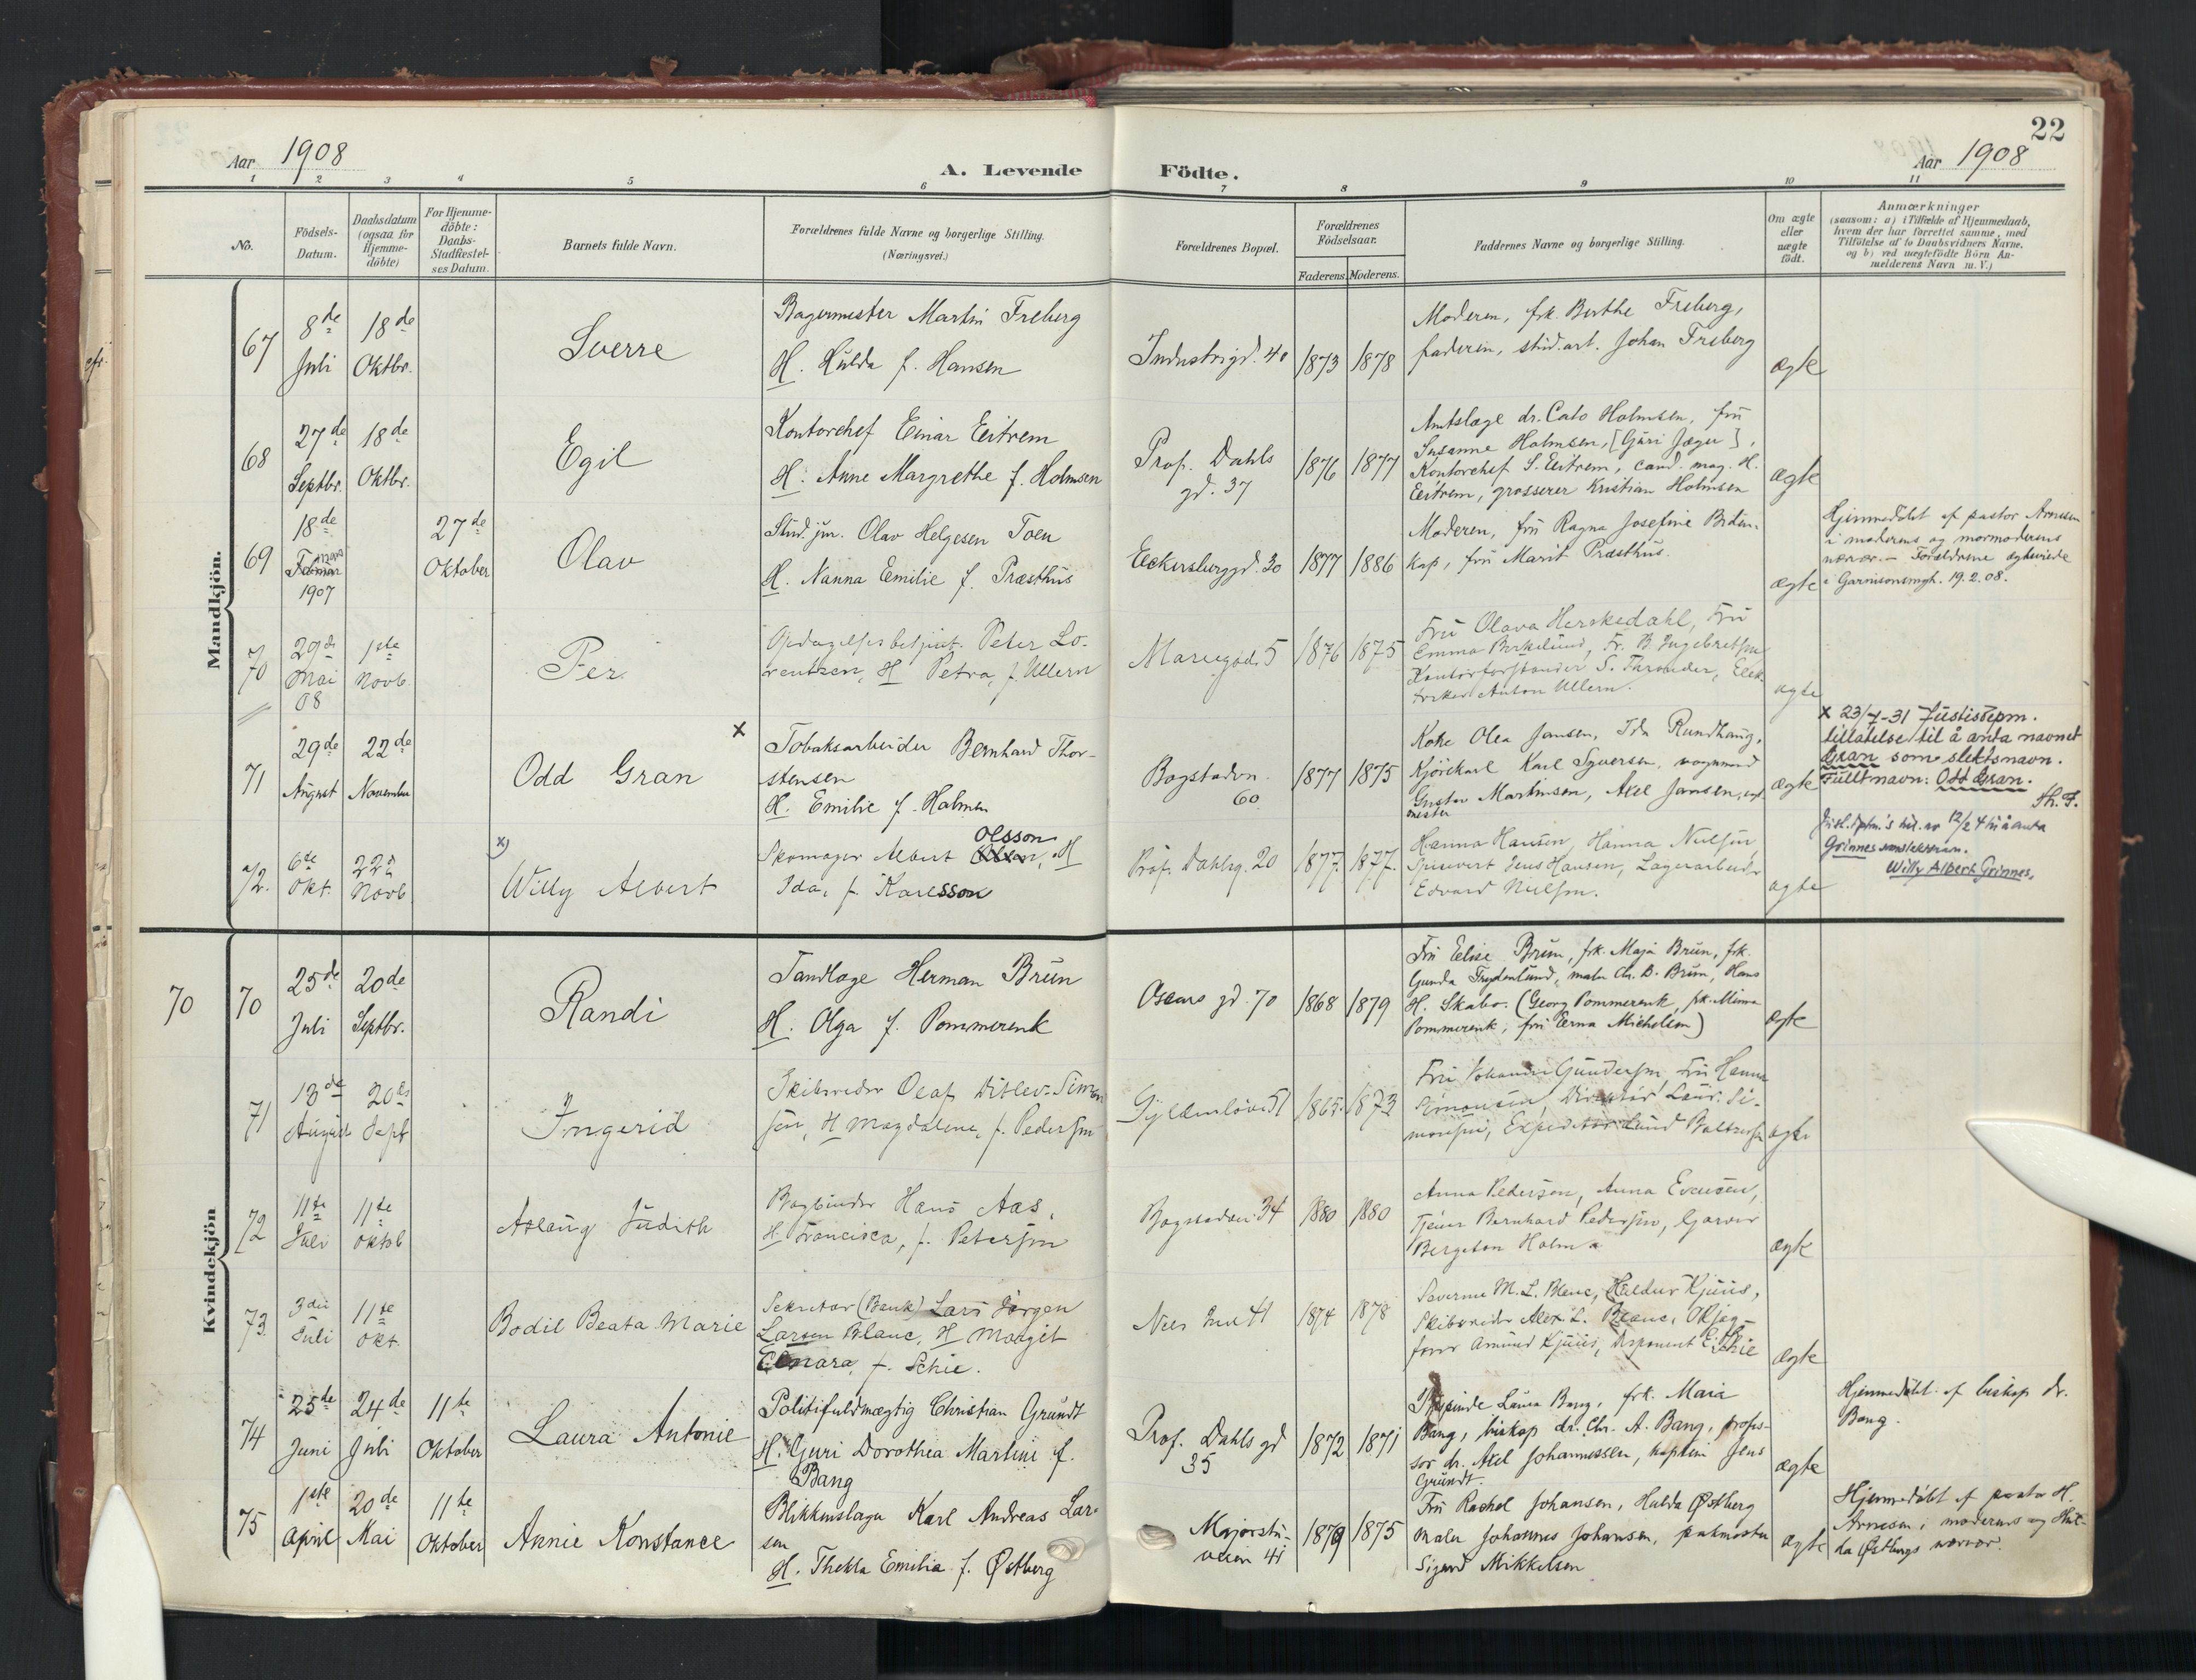 22
Aar 1908
A. Levende Födte.
Aar 1908
1 2 3 4 5 6 7 8 9 10 11
No.
Födsels-
Datum.
Daabsdatum
(ogsaa for
Hjemme-
döbte)
For Hjemme-
döbte:
Daabs-
Stadfæstel-
ses Datum.
Barnets fulde Navn.
Forældrenes fulde Navne og borgerlige Stilling.
(Næringsvei.)
Forældrenes Bopæl.
Forældrenes
Födselsaar.
Faderens. Moderens.
Faddernes Navne og borgerlige Stilling.
Om ægte
eller
uægte
födt.
Anmærkninger
(saasom: a) i Tilfælde af Hjemmedaab,
hvem der har forrettet samme, med
Tilföielse af to Daabsvidners Navne,
og b) ved uægtefödte Börn An-
melderens Navn m. V.)
Mandkjön.
67
8de
Juli
18de
Oktbr.
Sverre
Bagermester Martin Freberg
H. Hulda f. Hansen
Industrigd. 40
1873 1878
Moderen, frk. Berthe Freberg,
faderen, stud. art. Johan Freberg
ægte
68
27de
Septbr.
18de
Oktbr.
Egil
Kontorchef Einar Eitrem
H. Anne Margrethe f. Holmsen
Prof. Dahls
gd. 37
1876 1877
Amtslæge dr. Cato Holmsen, fru
Susanne Holmsen, [Guri Jæger],
Kontorchef S. Eitrem, cand. mag. H.
Eitrem, grosserer Kristian Holmsen
ægte
69
18de
1907
27de
Oktober
Olav
Stud. jur. Olav Helgesen Toen
H. Nanna Emilie f. Præsthus
Eckersberggd. 30
1877 1886
Moderen, fru Ragna Josefine
kap, fru Marit Præsthus.
ægte
Hjemmedöbt af pastor Arnesen
i moderens og mormoderens
nærvær. – Forældrene ægteviede
i Garnisonsmgh. 19.2.08.
70
29de
Mai
08
1ste
Novb.
Per
Opdagelsesbetjent Peter Lo-
rentzen, H Petra, f. Ullern
Mariegad. 5
1876 1875
Fru Olava Herskedahl, Fru
Emma Berkelund, Fr. B. Ingebretsen
Kontorforstander S. Thrander, Elek-
triker Anton Ullern.
ægte
71
29de
August
22de
November
Odd Gran
x
Tobaksarbeider Bernhard Thor-
stensen
H. Emilie f. Holmen
Bogstadvn.
60
1877 1875
Koke Olea Jansen, Ida Rundhaug,
Kjörekarl Karl Syversen, vognmand
Gustav Martinsen, Axel Jansen,
mester
ægte
x 23/7-31 Justisdepm.
tillatelse til å anta navnet
Gran som slektsnavn.
Fullt navn: Odd Gran.
Th. F.
72.
6te
Okt.
22de
Novb
x)
Willy Albert
Skomager Albert Olsson, H
Ida, f. Karlsson
Prof. Dahlsg. 20
1877. 1877.
Hanna Hansen, Hanna Nielsen,
Jens Hansen, Lagerarbeider
Edvard Nielsen.
ægte
12/2
Grinnes
Willy Albert Grinnes.
Kvindekjön
70 70
25de
Juli
20de
Septbr.
Randi
Tandlæge Herman Brun
H. Olga f. Pommerenk
Oscars gd. 70
1868 1879
Fru Elise Brun, frk. Maja Brun, frk.
Gunda Frydenlund, maler Chr. B. Brun, Hans
H. Skabo. (Georg Pommerenk, frk. Minna
Pommerenk, fru Erna Michelsen)
ægte
71
13de
August
20de
Sept
Ingerid
Skibsreder Olaf Ditlev-Simon
sen, H Magdalene, f. Pedersen
Gyldenlöve 51
1865. 1873
Fru Johanne Gundersen, Fru Hanna
Simonsen, Direktör Laur. Si-
monsen, Expeditör Lund Baltzersen
ægte
72
11te
Juli
11te
Oktob
Aslaug Judith
Bogbinder Hans Aas,
H. Francisca, f. Petersen
Bogstadvn. 34
1880 1880
Anna Pedersen, Anna Evensen,
Tjener Bernhard Pedersen, Garver
Bergeton Holm
ægte
73.
3die
Juli
11te
Okt.
Bodil Beata Marie
Sekretær (Bank) Lars Jörgen
Larsen Blanc, H Margit
Elnara, f. Schie.
Niels Juel 41
1874 1878
M. L. Blanc, Haldur Kjuus,
Skibsreder Alex. L. Blanc,
Amund Kjuus, Disponent E. Schie
ægte
74
25de
Juni
24de
Juli
11te
Oktober
Laura Antonie
Politifuldmægtig Christian Grundt
H. Guri Dorothea Martini f.
Bang
Prof. Dahls gd
35
1872 1871
Bispinde Laura Bang, frk. Maia
Bang, biskop dr. Chr. A. Bang, profes-
sor dr. Axel Johannessen, kaptein Jens
Grundt.
ægte
Hjemmedöbt af biskop dr.
Bang.
75
1ste
April
20de
Mai
11te
Oktober
Annie Konstance
Blikkenslager Karl Andreas Lar-
sen
H. Thekla Emilia f. Østberg
Majorstu-
veien 41
1879 1875
Fru Rachel Johansen, Hulda Østberg
maler Johannes Johansen, pakmester
Sigurd Mikkelsen
ægte
Hjemmedöbt af pastor H.
Arnesen, i moderens og Hul-
da Østbergs nærvær.